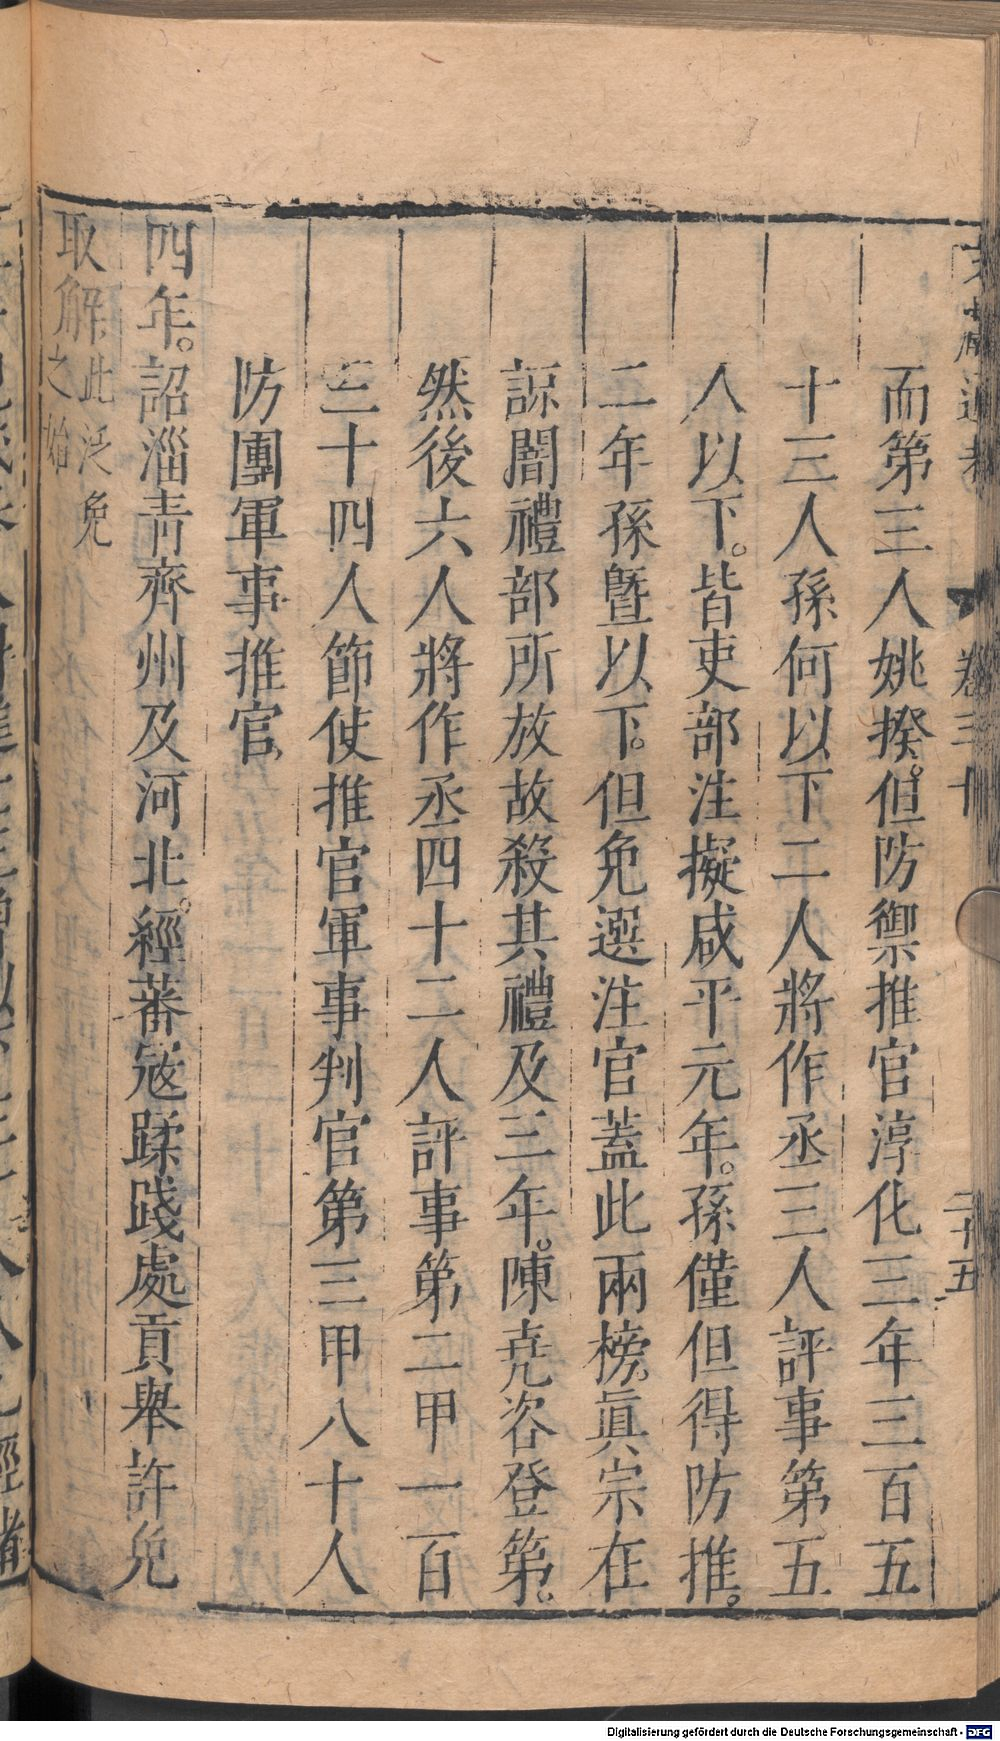 文獻通考 卷三十 二十五
而第三人姚揆。但防禦推官淳化三年三百五
十三人孫何以下二人將作丞三人評事第五
人以下。皆吏部注擬咸平元年。孫僅但得防推。
二年孫暨以下。但免選注官蓋此兩榜。眞宗在
諒闇禮部所放故殺其禮及三年。陳堯咨登第。
然後六人將作丞四十二人評事第二甲一百
三十四人節使推官軍事判官第三甲八十人
防團軍事推官
四年。詔淄靑齊州及河北。經蕃寇蹂踐處貢舉許免
取解此泛免
之始
Digitalisierung gefördert durch die Deutsche Forschungsgemeinschaft - DFG